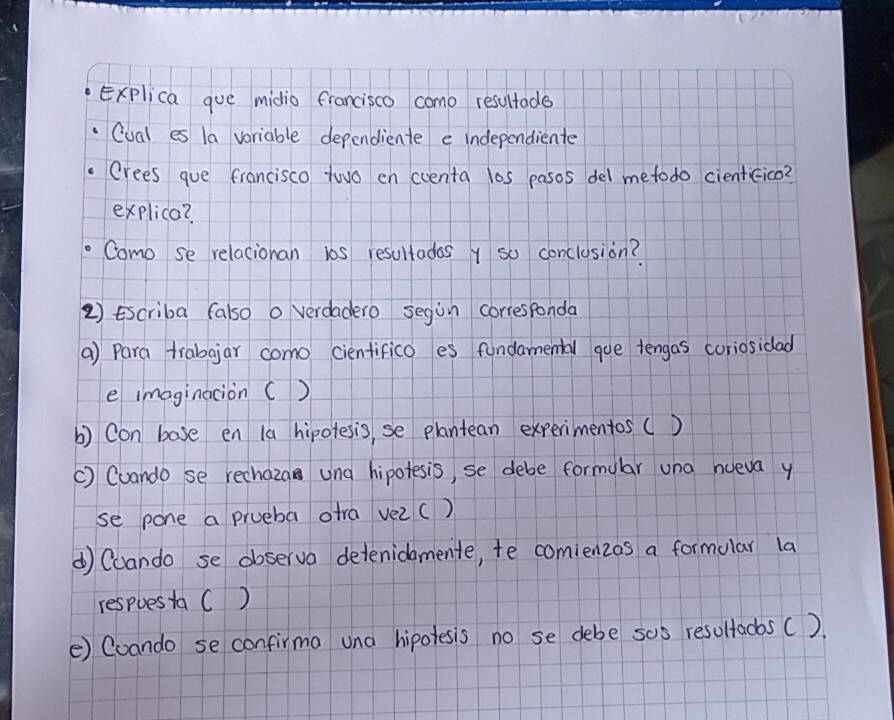 • Explica que midio francisco como resultado
• Cual es la variable dependiente e independiente
• Crees que francisco tuvo en cuenta los pasos del metodo cientifico?
explica?.
• Como se relacionan los resultados y su conclusión?
2) Escriba falso o verdadero según corresponda
a) Para trabajar como cientifico es fundamental que tengas curiosidad
e imaginación ( )
b) Con base en la hipotesis, se plantean experimentos ( )
c) Cuando se rechaza una hipotesis, se debe formular una nueva y
se pone a prueba otra vez ( )
d) Cuando se observa detenidamente, te comienzas a formular la
respuesta ( )
e) Cuando se confirma una hipotesis no se debe sus resultados ( ).